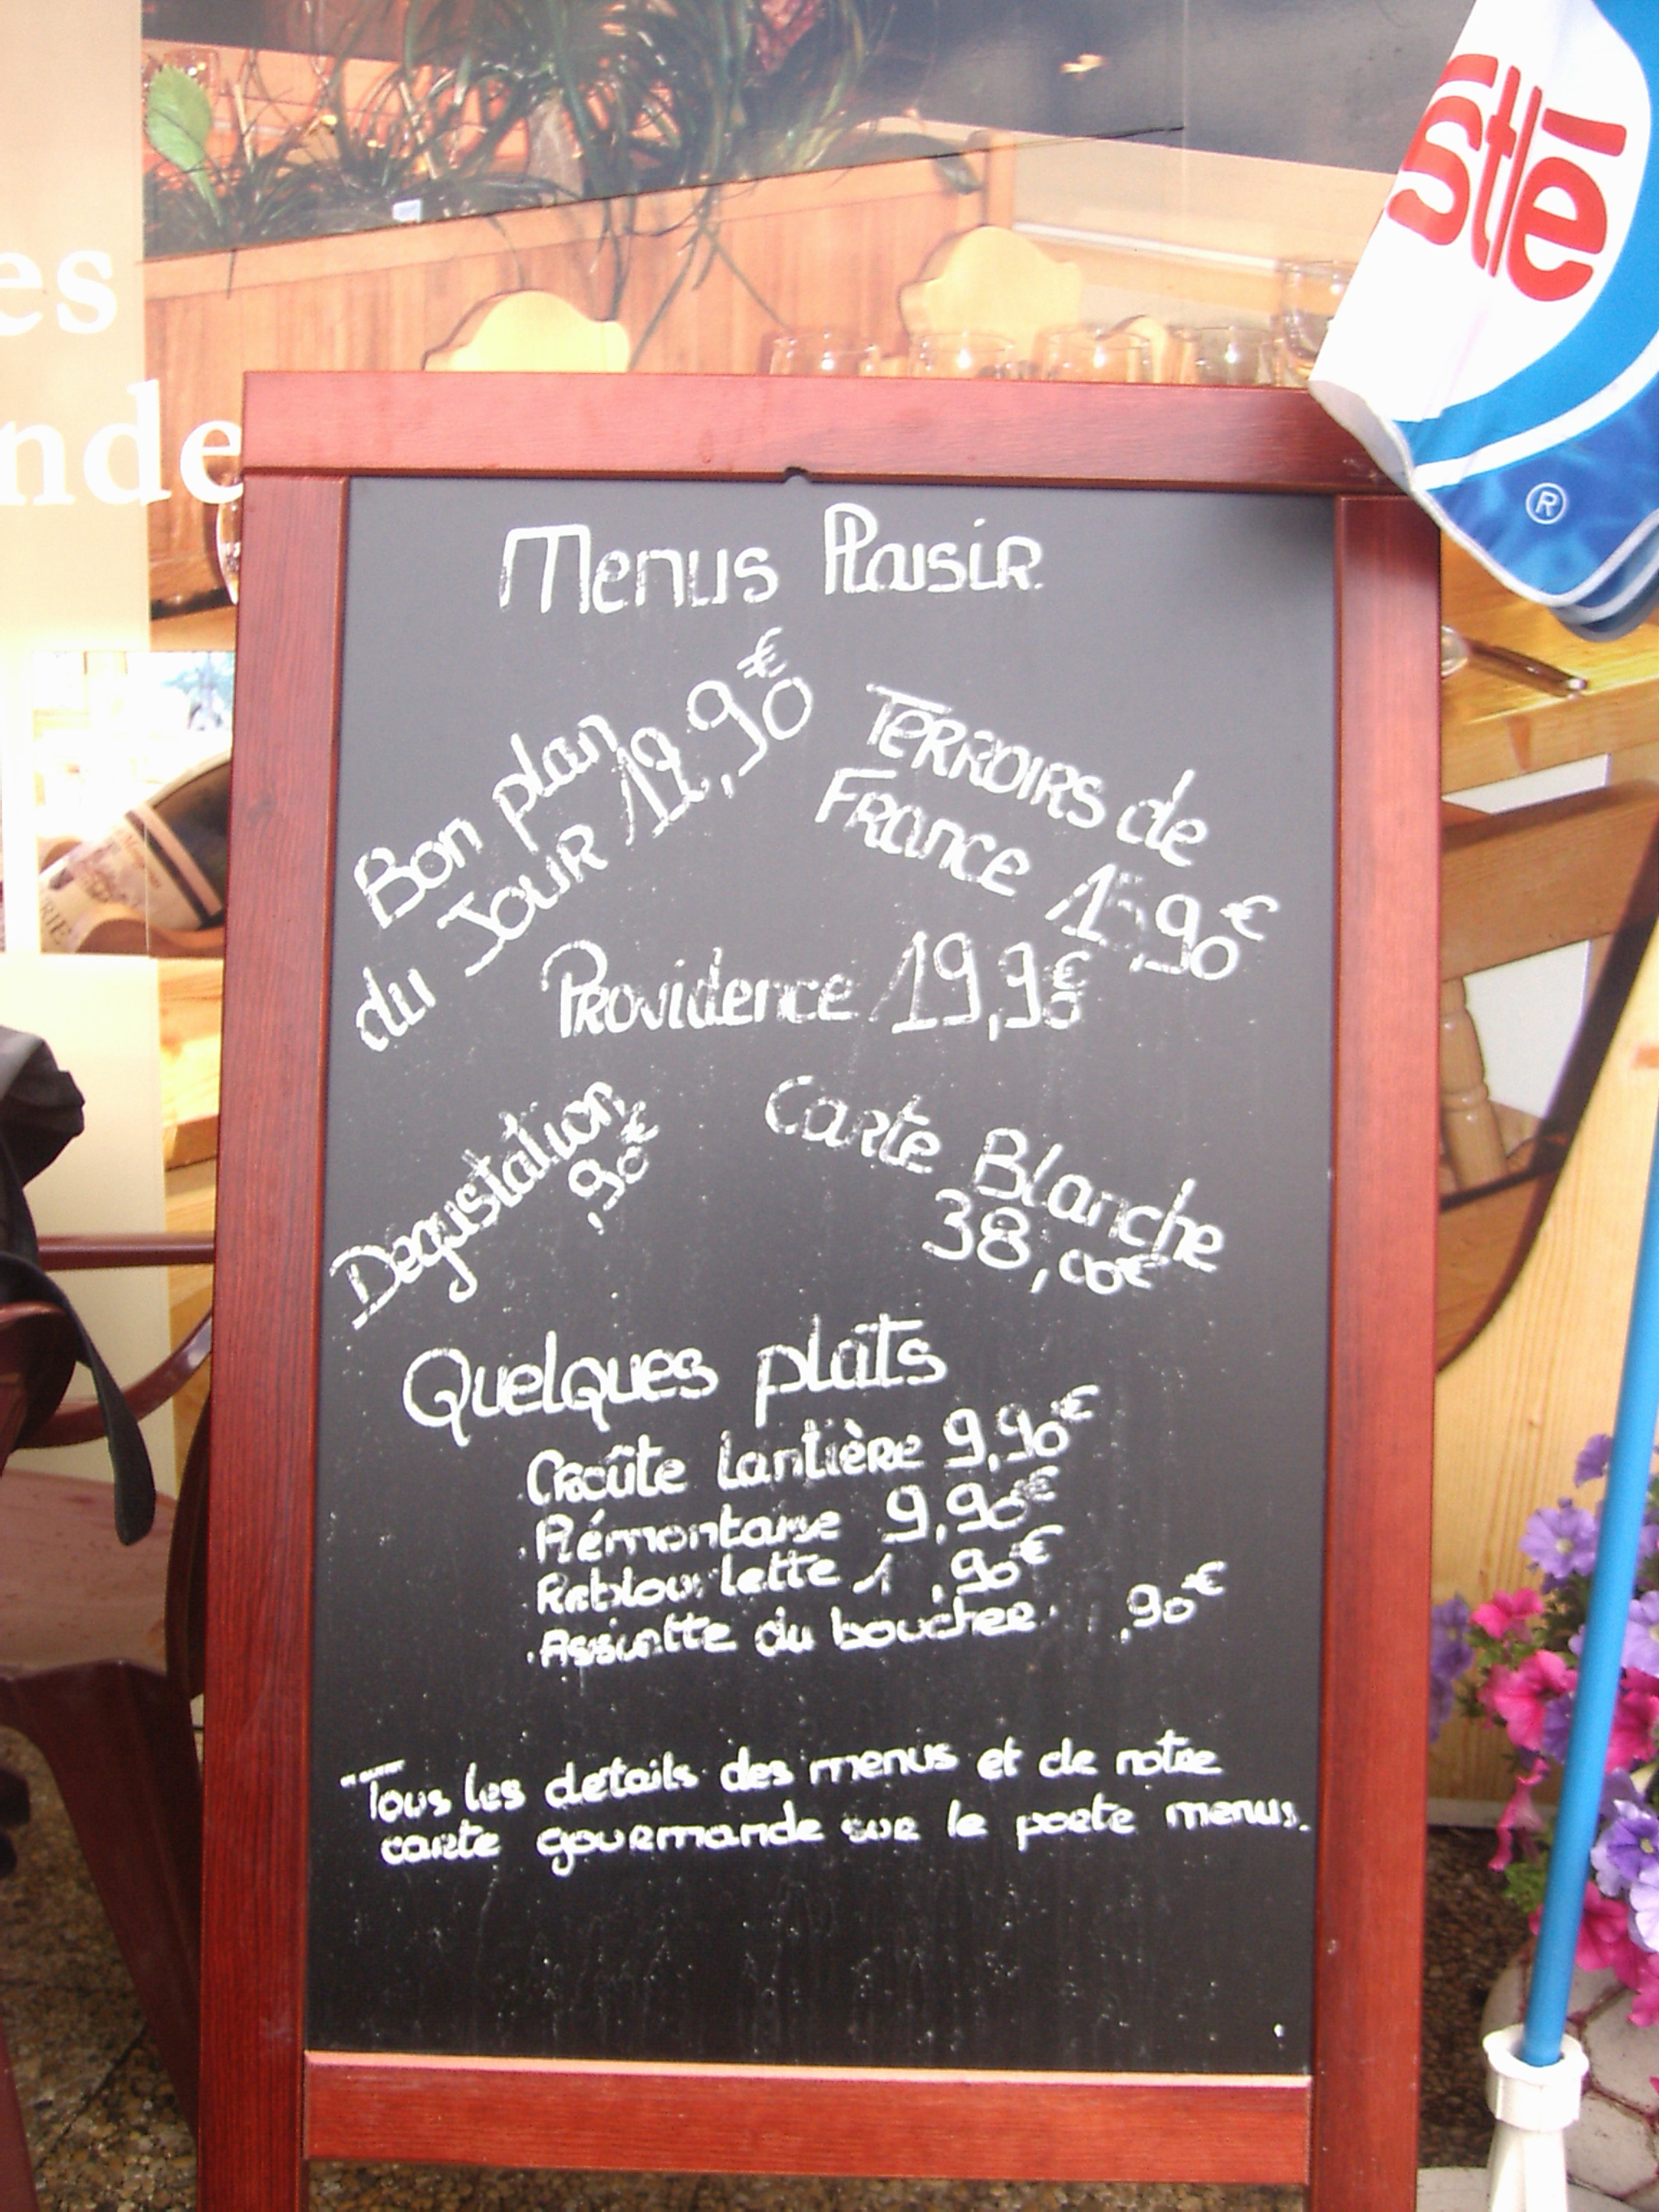 es
nde
stlé
®
Menus Plaisir
Bon plan
du Jour 12,90€
Terroirs de
France 15,90€
Providence 19,90€
Degustation
,90€
Carte Blanche
38,00€
Quelques plaîts
Croûte Lantière 9,90€
Rémontaise 9,90€
lette 1 ,90€
Assiette du boucher ,90€
Tous les détails des menus et de notre
carte gourmande sur le porte menus.